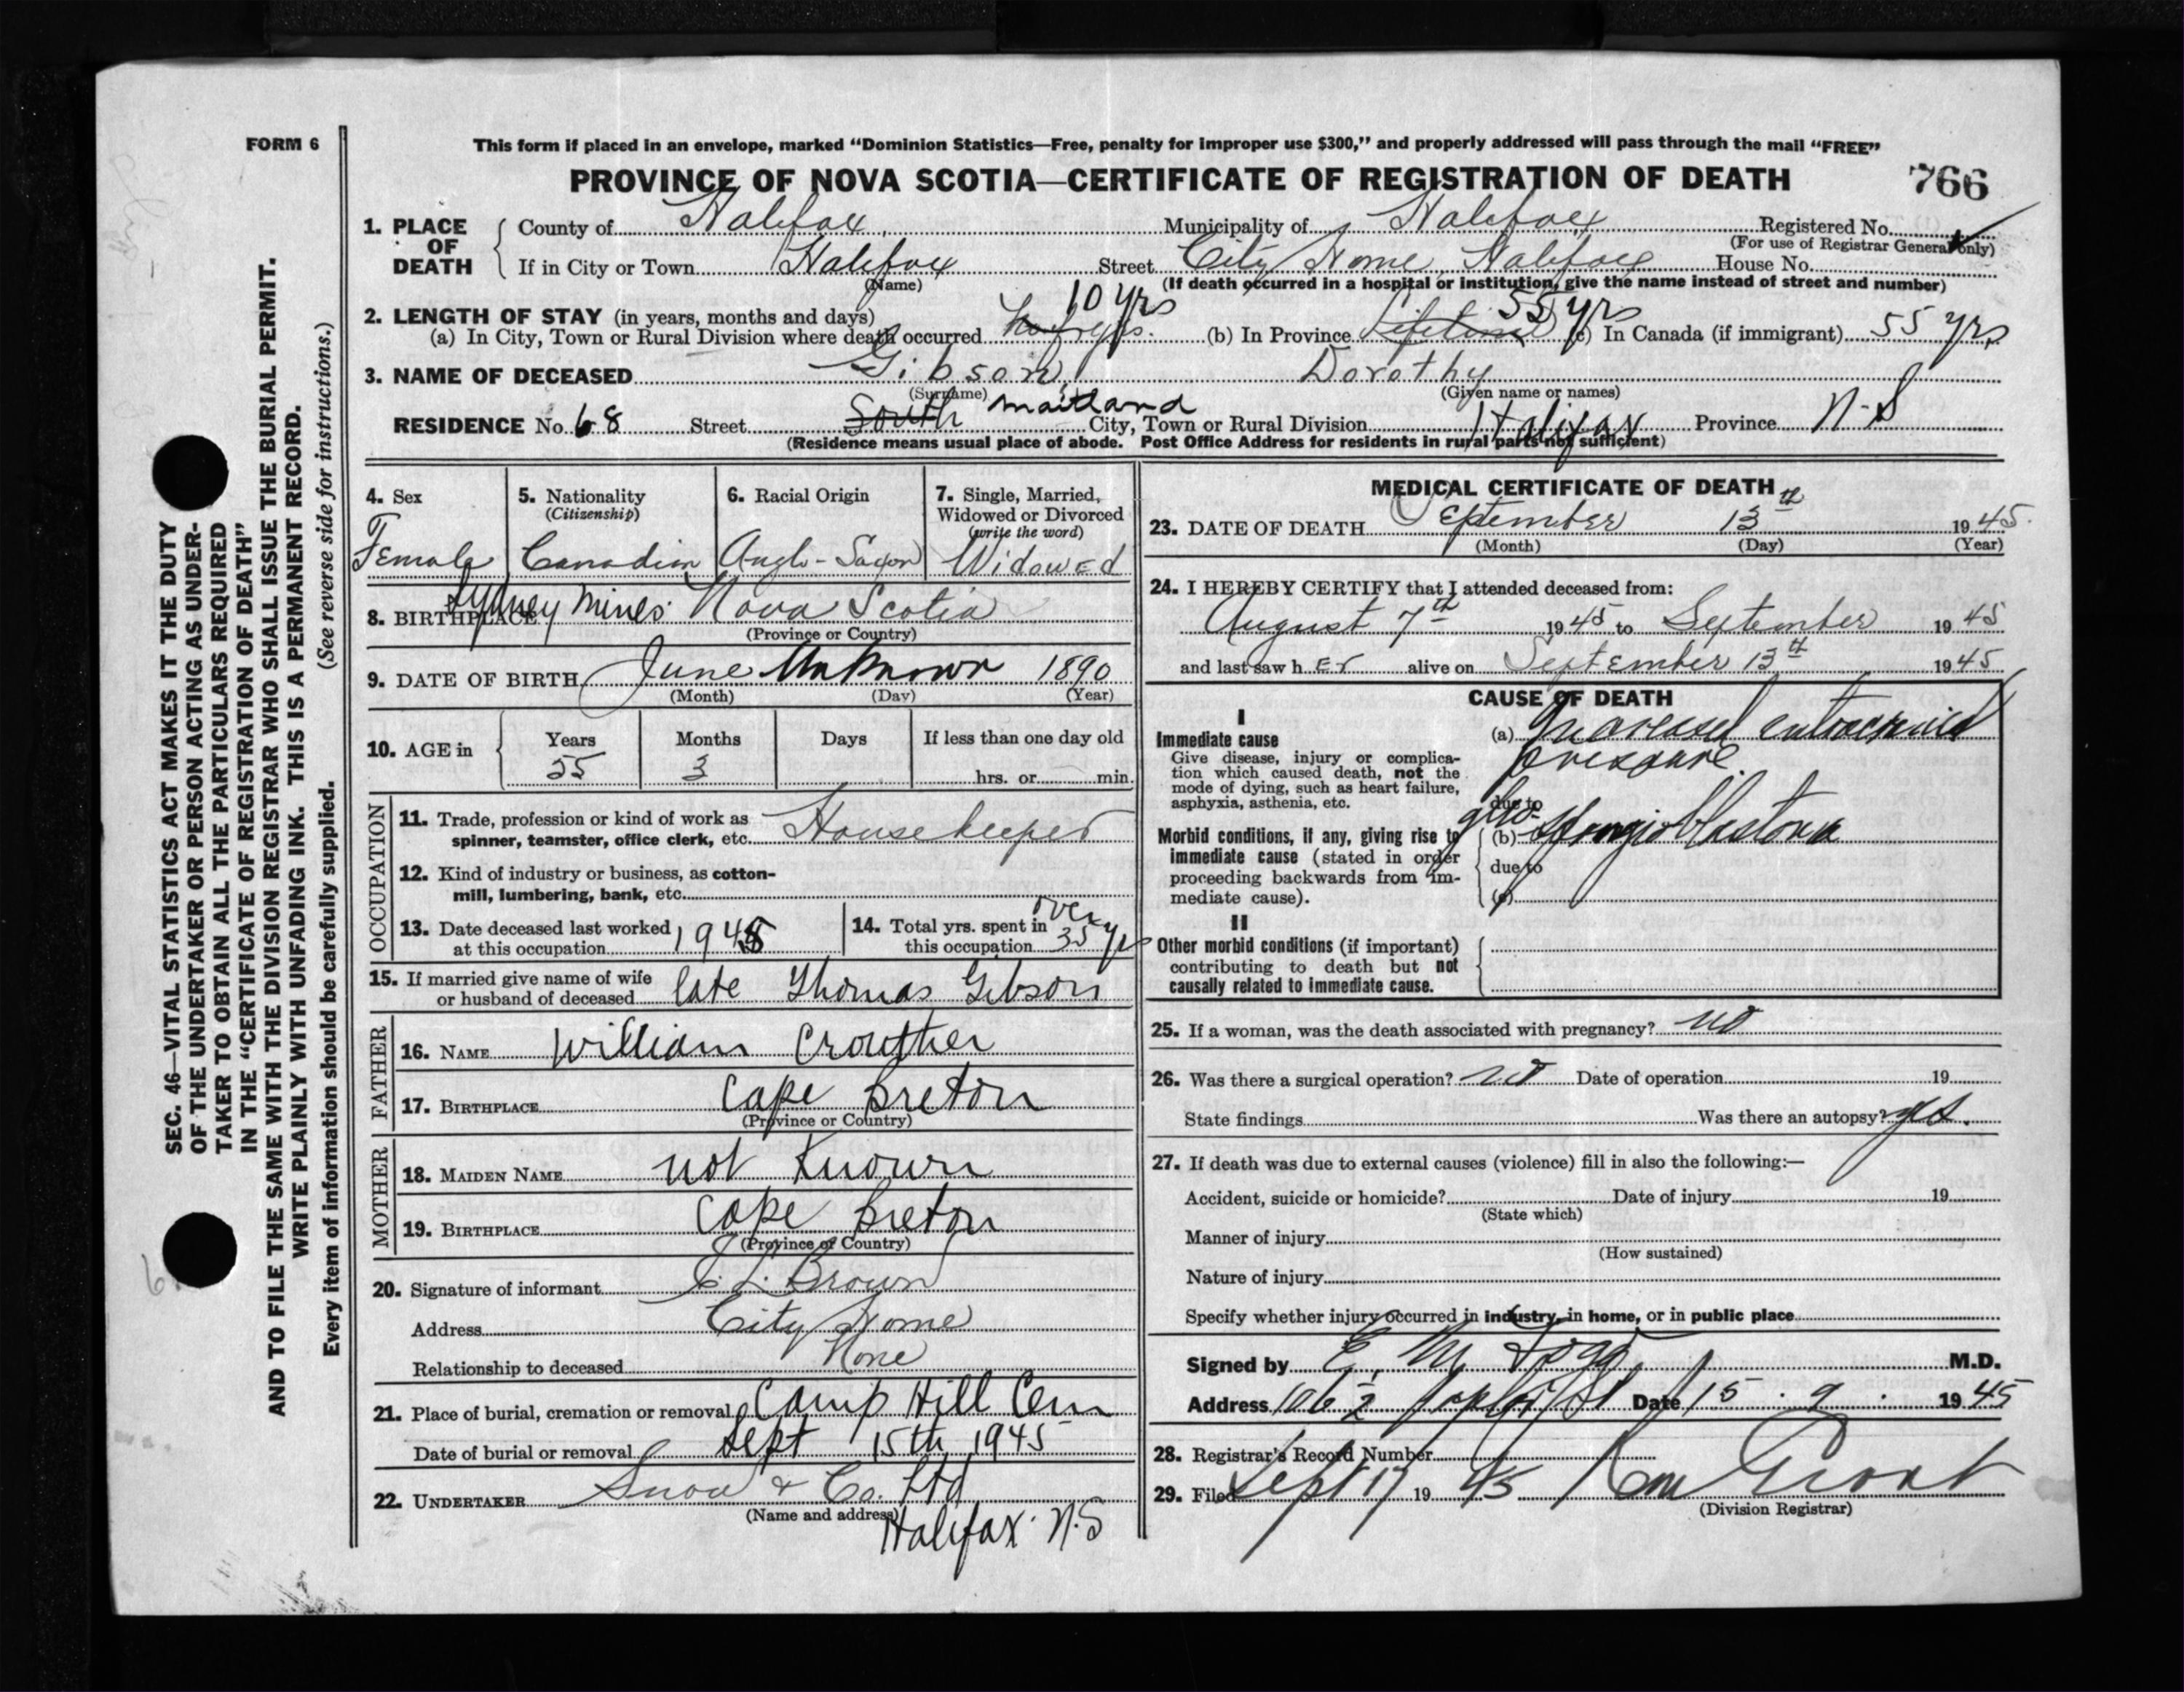 FORM 6
This form if placed in an envelope, marked “Dominion Statistics—Free, penalty for improper use $300,” and properly addressed will pass through the mail “FREE”
PROVINCE OF NOVA SCOTIA—CERTIFICATE OF REGISTRATION OF DEATH 766
SEC. 46—VITAL STATISTICS ACT MAKES IT THE DUTY
OF THE UNDERTAKER OR PERSON ACTING AS UNDER-
TAKER TO OBTAIN ALL THE PARTICULARS REQUIRED
IN THE “CERTIFICATE OF REGISTRATION OF DEATH”
AND TO FILE THE SAME WITH THE DIVISION REGISTRAR WHO SHALL ISSUE THE BURIAL PERMIT.
WRITE PLAINLY WITH UNFADING INK. THIS IS A PERMANENT RECORD.
Every item of information should be carefully supplied. (See reverse side for instructions.)
1. PLACE OF DEATH
County of Halifax Municipality of Halifax Registered No.
(For use of Registrar General only)
If in City or Town Halifax Street City Home, Halifax House No.
(Name) (If death occurred in a hospital or institution, give the name instead of street and number)
10 yrs 55 yrs
2. LENGTH OF STAY (in years, months and days)
(a) In City, Town or Rural Division where death occurred (b) In Province Lifetime (c) In Canada (if immigrant) 55 yrs
3. NAME OF DECEASED Gibson, Dorothy
(Surname) (Given name or names)
RESIDENCE No. 68 Street South Maitland City, Town or Rural Division Halifax Province N-S
(Residence means usual place of abode. Post Office Address for residents in rural parts not sufficient)
4. Sex
Female
5. Nationality
(Citizenship)
Canadian
6. Racial Origin
Anglo-Saxon
7. Single, Married,
Widowed or Divorced
(write the word)
Widowed
8. BIRTHPLACE Sydney Mines Nova Scotia
(Province or Country)
9. DATE OF BIRTH June Unknown 1890
(Month) (Day) (Year)
10. AGE in
Years Months Days If less than one day old
55 3 hrs. or min.
OCCUPATION
11. Trade, profession or kind of work as
spinner, teamster, office clerk, etc. Housekeeper
12. Kind of industry or business, as cotton-
mill, lumbering, bank, etc.
13. Date deceased last worked
at this occupation 1945
14. Total yrs. spent in over
this occupation 35 yrs
15. If married give name of wife
or husband of deceased late Thomas Gibson
FATHER
16. NAME William Crowther
17. BIRTHPLACE Cape Breton
(Province or Country)
MOTHER
18. MAIDEN NAME not Known
19. BIRTHPLACE Cape Breton
(Province or Country)
20. Signature of informant Brown
Address City Home
Relationship to deceased None
21. Place of burial, cremation or removal Camp Hill Cem
Date of burial or removal Sept 15th 1945
22. UNDERTAKER Snow & Co. Ltd
(Name and address) Halifax N.S
MEDICAL CERTIFICATE OF DEATH
23. DATE OF DEATH September 13th 1945
(Month) (Day) (Year)
24. I HEREBY CERTIFY that I attended deceased from:
August 7th 1945 to September 1945
and last saw her alive on September 13th 1945
CAUSE OF DEATH
I
Immediate cause
Give disease, injury or complica-
tion which caused death, not the
mode of dying, such as heart failure,
asphyxia, asthenia, etc.
(a) Increased intracranial
pressure
due to
Morbid conditions, if any, giving rise to
immediate cause (stated in order
proceeding backwards from im-
mediate cause).
glio-
(b) spongioblastoma
due to
(c)
II
Other morbid conditions (if important)
contributing to death but not
causally related to immediate cause.
25. If a woman, was the death associated with pregnancy? no
26. Was there a surgical operation? no Date of operation 19
State findings Was there an autopsy? yes.
27. If death was due to external causes (violence) fill in also the following:—
Accident, suicide or homicide? Date of injury 19
(State which)
Manner of injury
(How sustained)
Nature of injury
Specify whether injury occurred in industry, in home, or in public place
Signed by E. M. Fogo M.D.
Address 106½ St Date 15 . 9 . 1945
28. Registrar's Record Number
29. Filed Sept 17 1945 Grant
(Division Registrar)